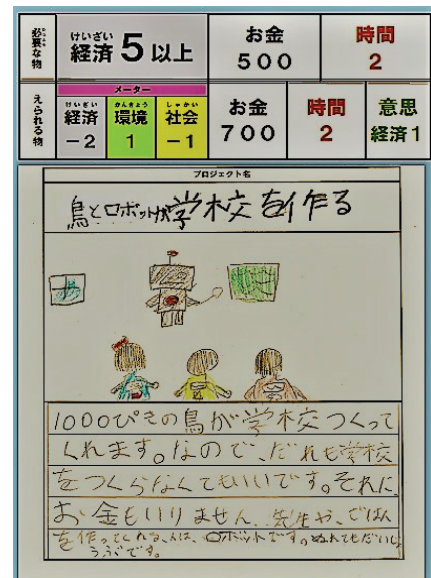 必要な物
ひつよう
けいざい
経済 5 以上
お金
500
時間
2
えられる物
メーター
けいざい
経済
−2
かんきょう
環境
1
しゃかい
社会
−1
お金
700
時間
2
意思
経済 1
プロジェクト名
鳥とロボットが学校を作る
1000ぴきの鳥が学校つくって
くれます。なので、だれも学校
をつくらなくてもいいです。それに、
お金もいりません。先生や、ごはん
を作ってくれる人は、ロボットです。ぬれてもだいじょ
うぶです。